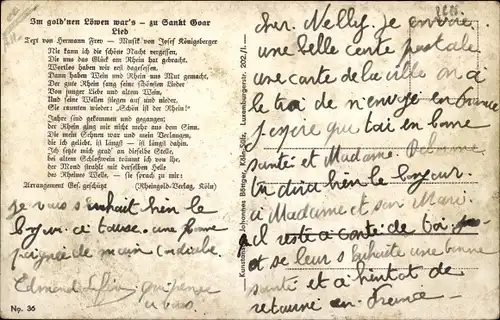 Im gold'nen Löwen war's – zu Sankt Goar
Lied
Text von Hermann Frey – Musik von Josef Königsberger
Nie kann ich die schöne Nacht vergessen,
Die uns das Glück am Rhein hat gebracht.
Wortlos haben wir erst dagesessen.
Dann haben Wein und Rhein uns Mut gemacht,
Der gute Rhein sang seine schönsten Lieder
Von junger Liebe und altem Wein,
Und seine Wellen stiegen auf und nieder.
Sie raunten wieder: „Schön ist der Rhein!“
Jahre sind gekommen und gegangen:
der Rhein ging mir nicht mehr aus dem Sinn.
Wie mein Sehnen war und mein Verlangen,
die ich geliebt, ist längst – ist längst dahin.
Ich setzte mich grad' an dieselbe Stelle,
bei altem Schloßwein träumt ich von ihr,
der Mond strahlt mit derselben Helle
des Rheines Welle, – sie sprach zu mir:
Arrangement Ges. geschützt (Rheingold-Verlag, Köln)
je vous souhait bien le
une bonne
poignée de main cordiale
Edmond
No. 36
Kunstanstalt Johannes Böttger, Köln-Sülz, Luxemburgerstr. 202/I.
cher. Nelly. je
une belle carte postale
une carte de la ville on a
le de n'envoie en France
J'espère que toi en bonne
santé et Madame.
tu dira bien le bonjour
a Madame et son Mari
il reste a conte de toi
et se leur souhaite une bonne
santé et a bientot de
retourné en France –